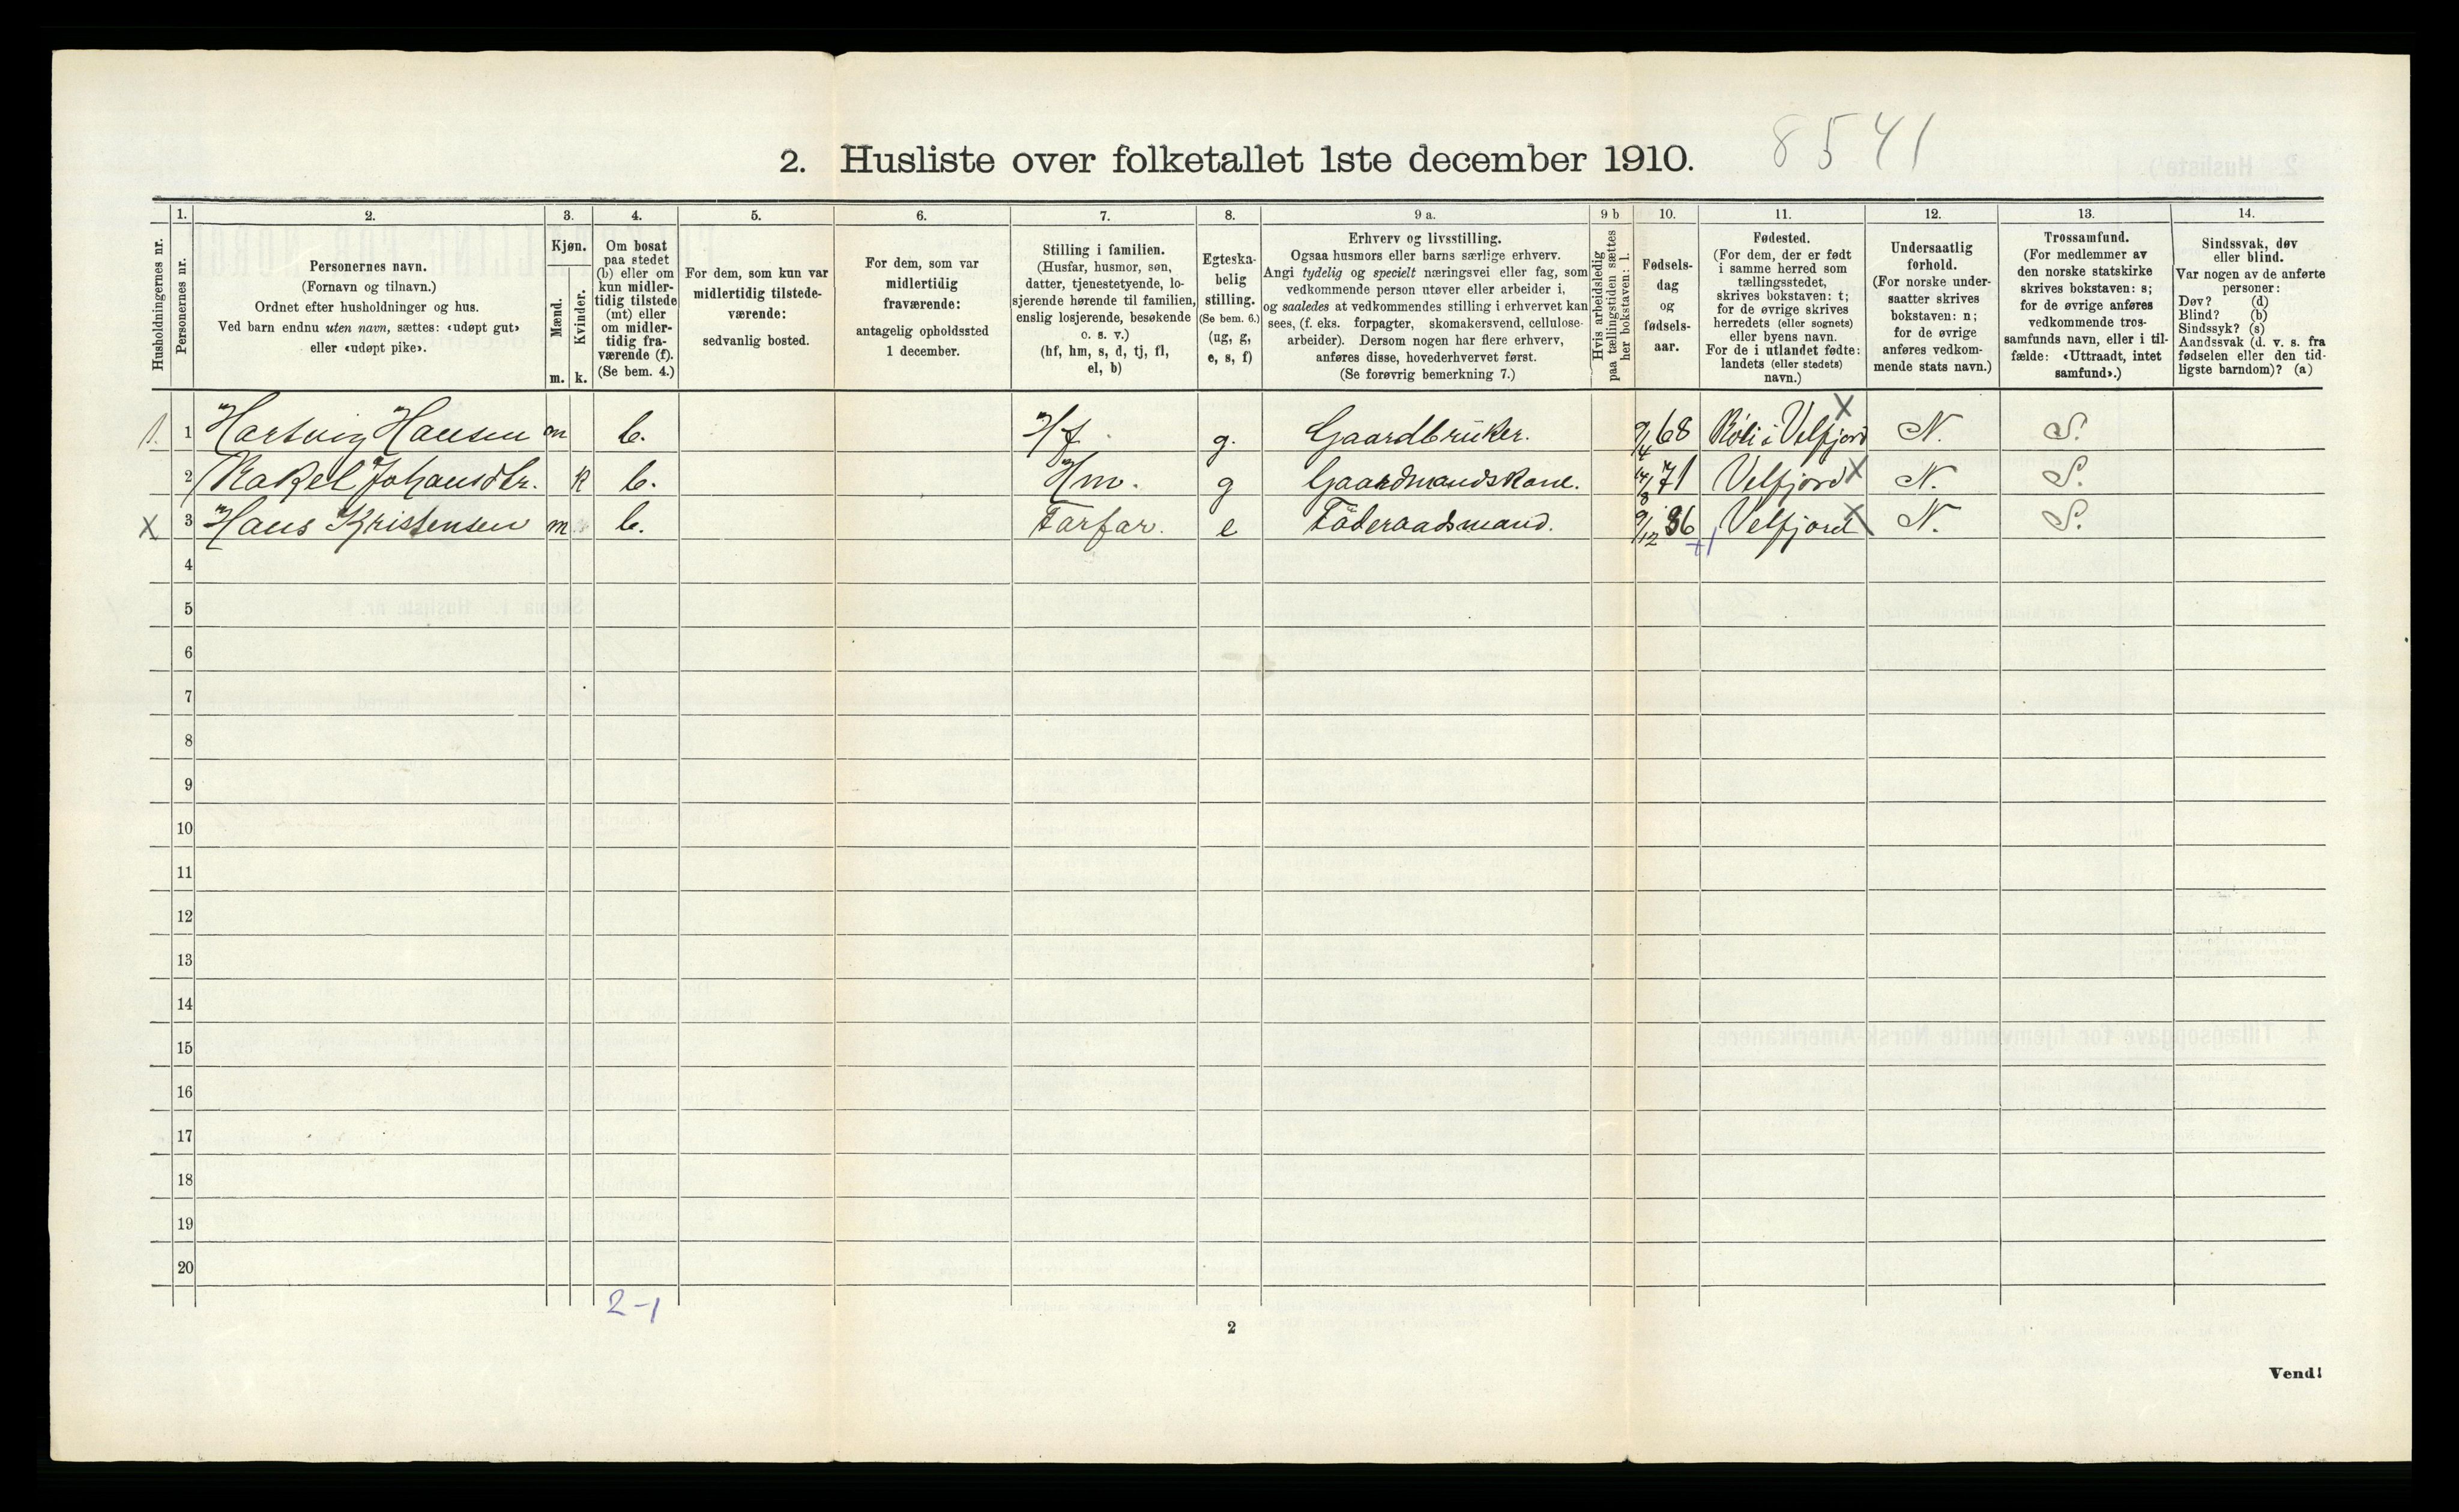 8541
2. Husliste over folketallet 1ste december 1910.
Husholdningernes nr.
1.
Personernes nr.
2.
Personernes navn.
(Fornavn og tilnavn.)
Ordnet efter husholdninger og hus.
Ved barn endnu uten navn, sættes: «udøpt gut»
eller «udøpt pike».
3.
Kjøn.
Mænd.
Kvinder.
m. k.
4.
Om bosat
paa stedet
(b) eller om
kun midler-
tidig tilstede
(mt) eller
om midler-
tidig fra-
værende (f).
(Se bem. 4.)
5.
For dem, som kun var
midlertidig tilstede-
værende:
sedvanlig bosted.
6.
For dem, som var
midlertidig
fraværende:
antagelig opholdssted
1 december.
7.
Stilling i familien.
(Husfar, husmor, søn,
datter, tjenestetyende, lo-
sjerende hørende til familien,
enslig losjerende, besøkende
o. s. v.)
(hf, hm, s, d, tj, fl,
el, b)
8.
Egteska-
belig
stilling.
(Se bem. 6.)
(ug, g,
e, s, f)
9 a.
Erhverv og livsstilling.
Ogsaa husmors eller barns særlige erhverv.
Angi tydelig og specielt næringsvei eller fag, som
vedkommende person utøver eller arbeider i,
og saaledes at vedkommendes stilling i erhvervet kan
sees, (f. eks. forpagter, skomakersvend, cellulose-
arbeider). Dersom nogen har flere erhverv,
anføres disse, hovederhvervet først.
(Se forøvrig bemerkning 7.)
9 b
Hvis arbeidsledig
paa tællingstiden sættes
her bokstaven: l.
10.
Fødsels-
dag
og
fødsels-
aar.
11.
Fødested.
(For dem, der er født
i samme herred som
tællingsstedet,
skrives bokstaven: t;
for de øvrige skrives
herredets (eller sognets)
eller byens navn.
For de i utlandet fødte:
landets (eller stedets)
navn.)
12.
Undersaatlig
forhold.
(For norske under-
saatter skrives
bokstaven: n;
for de øvrige
anføres vedkom-
mende stats navn.)
13.
Trossamfund.
(For medlemmer av
den norske statskirke
skrives bokstaven: s;
for de øvrige anføres
vedkommende tros-
samfunds navn, eller i til-
fælde: «Uttraadt, intet
samfund».)
14.
Sindssvak, døv
eller blind.
Var nogen av de anførte
personer:
Døv? (d)
Blind? (b)
Sindssyk? (s)
Aandssvak (d. v. s. fra
fødselen eller den tid-
ligste barndom)? (a)
1. 1 Hartvig Hansen m b. Hf. g. Gaardbruker. 9/4 68 i Velfjord X N. S.
2 Rakel Johansdtr. k b. Hm. g Gaardmandskone. 14/8 71 Velfjord X N. S.
X 3 Hans Kristensen m b. Farfar. e Føderaadsmand. 9/12 36 +1 Velfjord X N. S.
4
5
6
7
8
9
10
11
12
13
14
15
16
17
18
19
20
2-1
2
Vend!